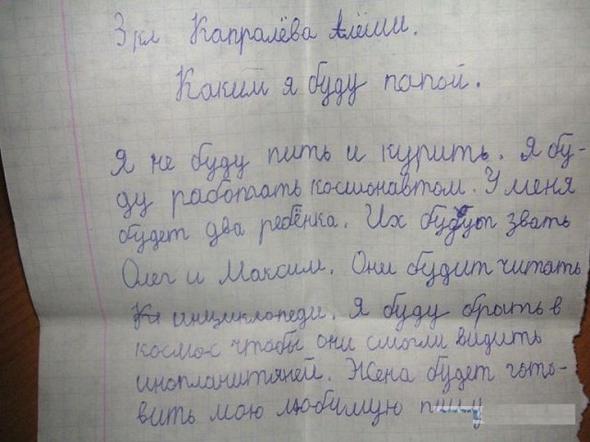 3 кл Капралёва Алёши.
Каким я буду папой.
Я не буду пить и курить. Я бу-
ду работать космонавтом. У меня
будет два ребёнка. Их будут звать
Олег и Максим. Они будит читать
инциклопеди. Я буду брать в
космос чтобы они смогли видить
инопланитяней. Жена будет гото-
вить мою любимую пищу